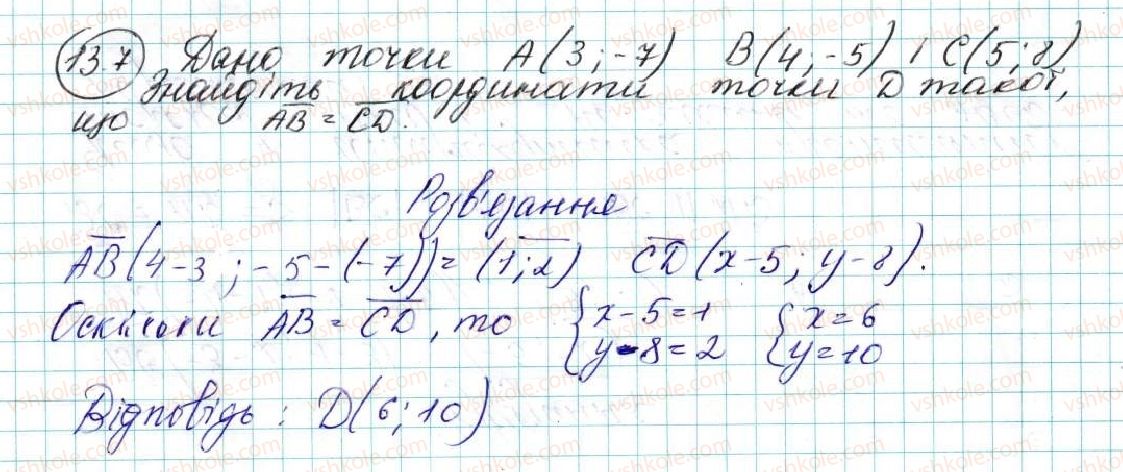 13.7 Дано точки A(3;-7) B(4;-5) і C(5;8)
Знайдіть координати точки D такої,
що AB = CD.
Розв'язання
AB(4-3;-5-(-7))=(1;2) CD(x-5; y-8).
Оскільки AB = CD, то { x-5=1 { x=6
y-8=2 y=10
Відповідь: D(6;10)
vshkole.com